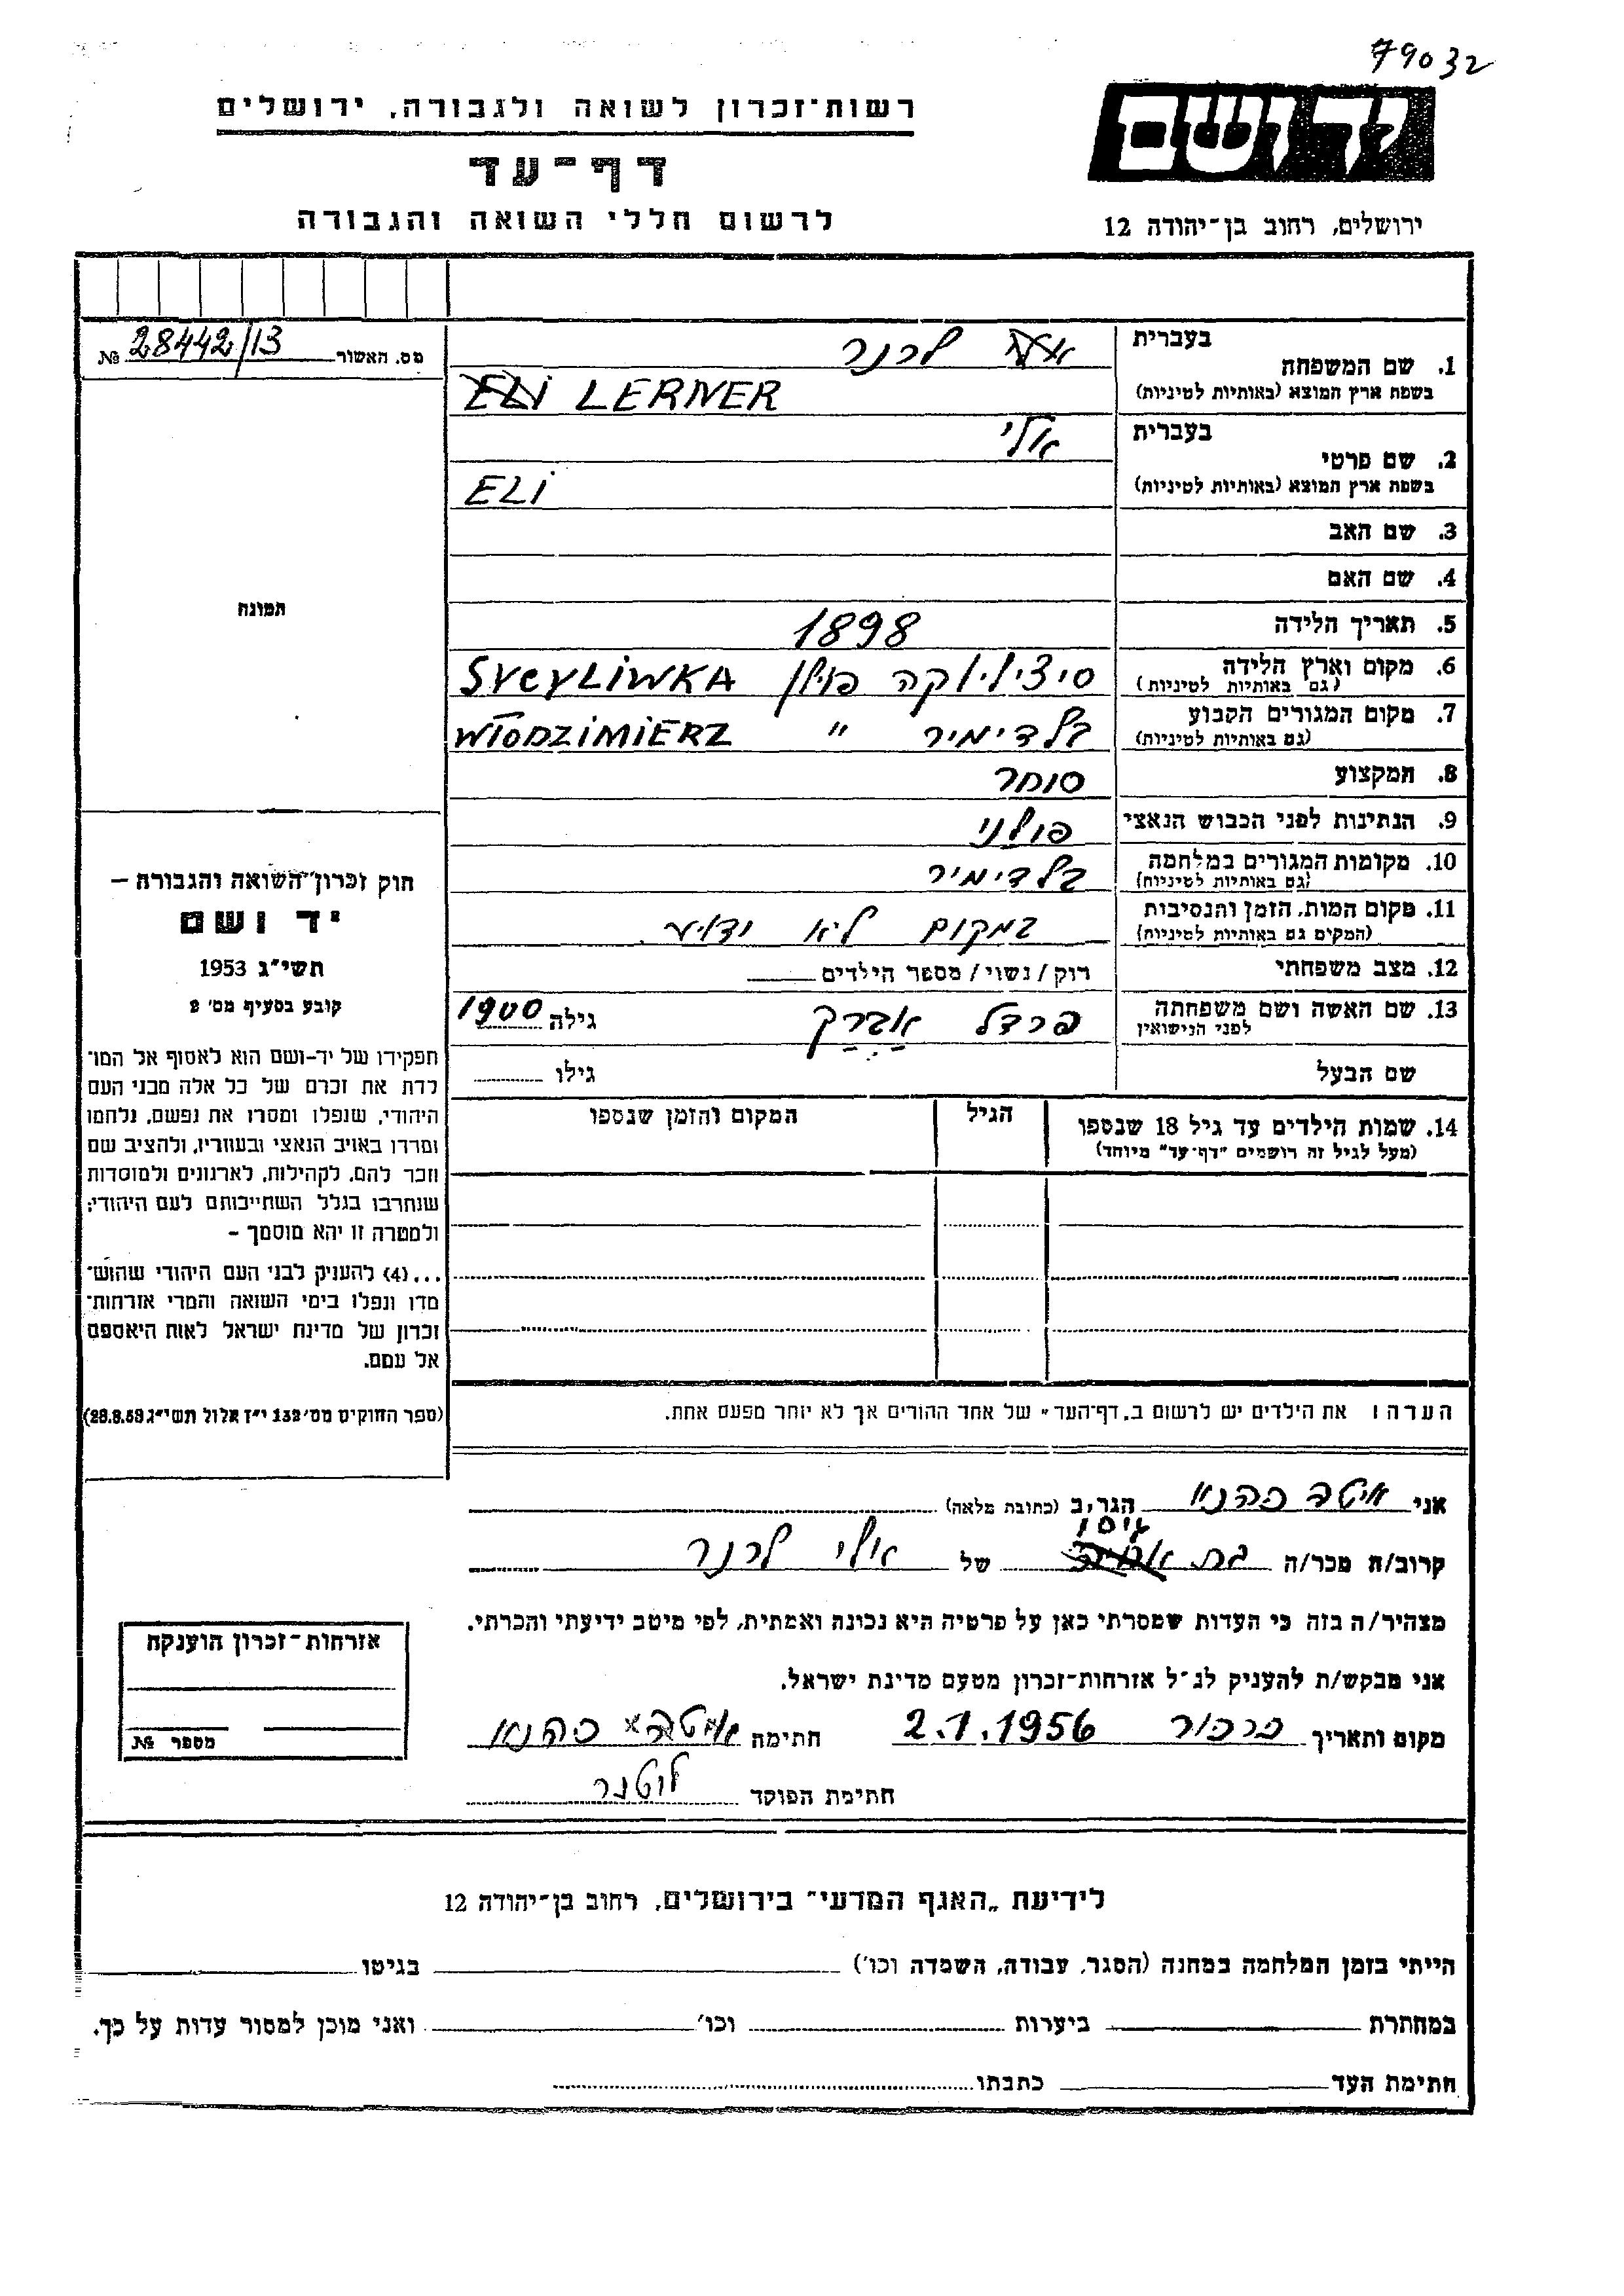 79032
ידושם
רשות־זכרון לשואה ולגבורה, ירושלים
דף־עד
לרשום חללי השואה והגבורה
ירושלים, רחוב בן־יהודה 12
מס. האשור 28442/13 №
בעברית
1. שם המשפחה לרנר
בשפת ארץ המוצא (באותיות לטיניות) ELI LERNER
בעברית
2. שם פרטי אלי
בשפת ארץ המוצא (באותיות לטיניות) ELI
3. שם האב
4. שם האם
תמונה
5. תאריך הלידה 1898
6. מקום וארץ הלידה סיצילוקה פולין SYCYLIWKA
(גם באותיות לטיניות)
7. מקום המגורים הקבוע בלדימיר " WŁODZIMIERZ
(גם באותיות לטיניות)
8. המקצוע סוחר
9. הנתינות לפני הכבוש הנאצי פולני
10. מקומות המגורים במלחמה בלדימיר
(גם באותיות לטיניות)
11. מקום המות, הזמן והנסיבות במקום לא ידוע
(המקום גם באותיות לטיניות)
12. מצב משפחתי רוק/נשוי/מספר הילדים
13. שם האשה ושם משפחתה פרדל גילה 1900
לפני הנישואין
שם הבעל גילו
14. שמות הילדים עד גיל 18 שנספו הגיל המקום והזמן שנספו
(מעל לגיל זה רושמים "דף־עד" מיוחד)
הערה: את הילדים יש לרשום ב„דף־העד" של אחד ההורים אך לא יותר מפעם אחת.
חוק זכרון השואה והגבורה –
יד ושם
תשי"ג 1953
קובע בסעיף מס' 2
תפקידו של יד-ושם הוא לאסוף אל המו־
לדת את זכרם של כל אלה מבני העם
היהודי, שנפלו ומסרו את נפשם, נלחמו
ומרדו באויב הנאצי ובעוזריו, ולהציב שם
וזכר להם, לקהילות, לארגונים ולמוסדות
שנחרבו בגלל השתייכותם לעם היהודי;
ולמטרה זו יהא מוסמך –
...(4) להעניק לבני העם היהודי שהוש־
מדו ונפלו בימי השואה והמרי אזרחות־
זכרון של מדינת ישראל לאות היאספם
אל עמם.
(ספר החוקים מס' 132 י"ז אלול תשי"ג 28.8.53)
אני איטה כהנא הגר/ב (כתובת מלאה)
קרוב/ה מכר/ה גיסו של אילי לרנר
מצהיר/ה בזה כי העדות שמסרתי כאן על פרטיה היא נכונה ואמתית, לפי מיטב ידיעתי והכרתי.
אני מבקש/ת להעניק לנ"ל אזרחות-זכרון מטעם מדינת ישראל.
מקום ותאריך כרכור 2.1.1956 חתימה איטה כהנא
חתימת הפוקד לוטנר
אזרחות-זכרון הוענקה
מספר №
לידיעת „האגף המדעי" בירושלים, רחוב בן־יהודה 12
הייתי בזמן המלחמה במחנה (הסגר, עבודה, השמדה וכו') בגיטו
במחתרת ביערות וכו' ואני מוכן למסור עדות על כך.
חתימת העד כתבתו